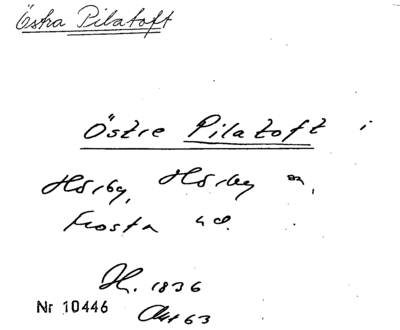 Östra Pilatoft
Östre Pilatoft i
Hörby, Hörby sn,
Frosta hd.
H. 1836
Nr 10446 Akt 63